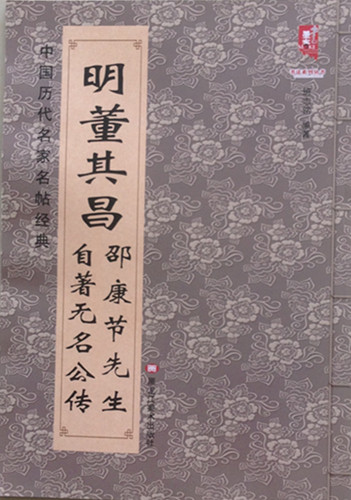 中国历代名家名帖经典
明董其昌
邵康节先生
自著无名公传
黑龙江美术出版社